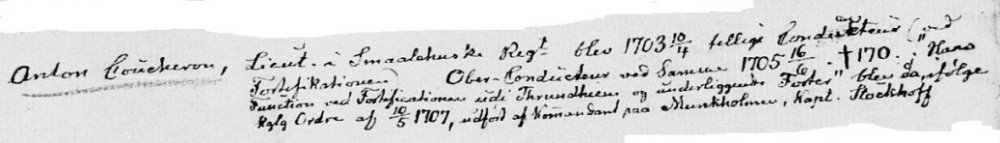 Anton Coucheron, Lieut. i Smaalehuske Regt blev 1703 10/4 tillige Condukteur (ved
Fortifikationen) Ober-Conducteur ved Samme 1705 16/6. †170 . "Hans
Function ved Fortificationen udi Thrundhiem og underliggende Forter" blev da, ifølge
Kglg Ordre af 10/5 1707, udført af Komandant paa Munkholmen, Kapt. Stockhoff